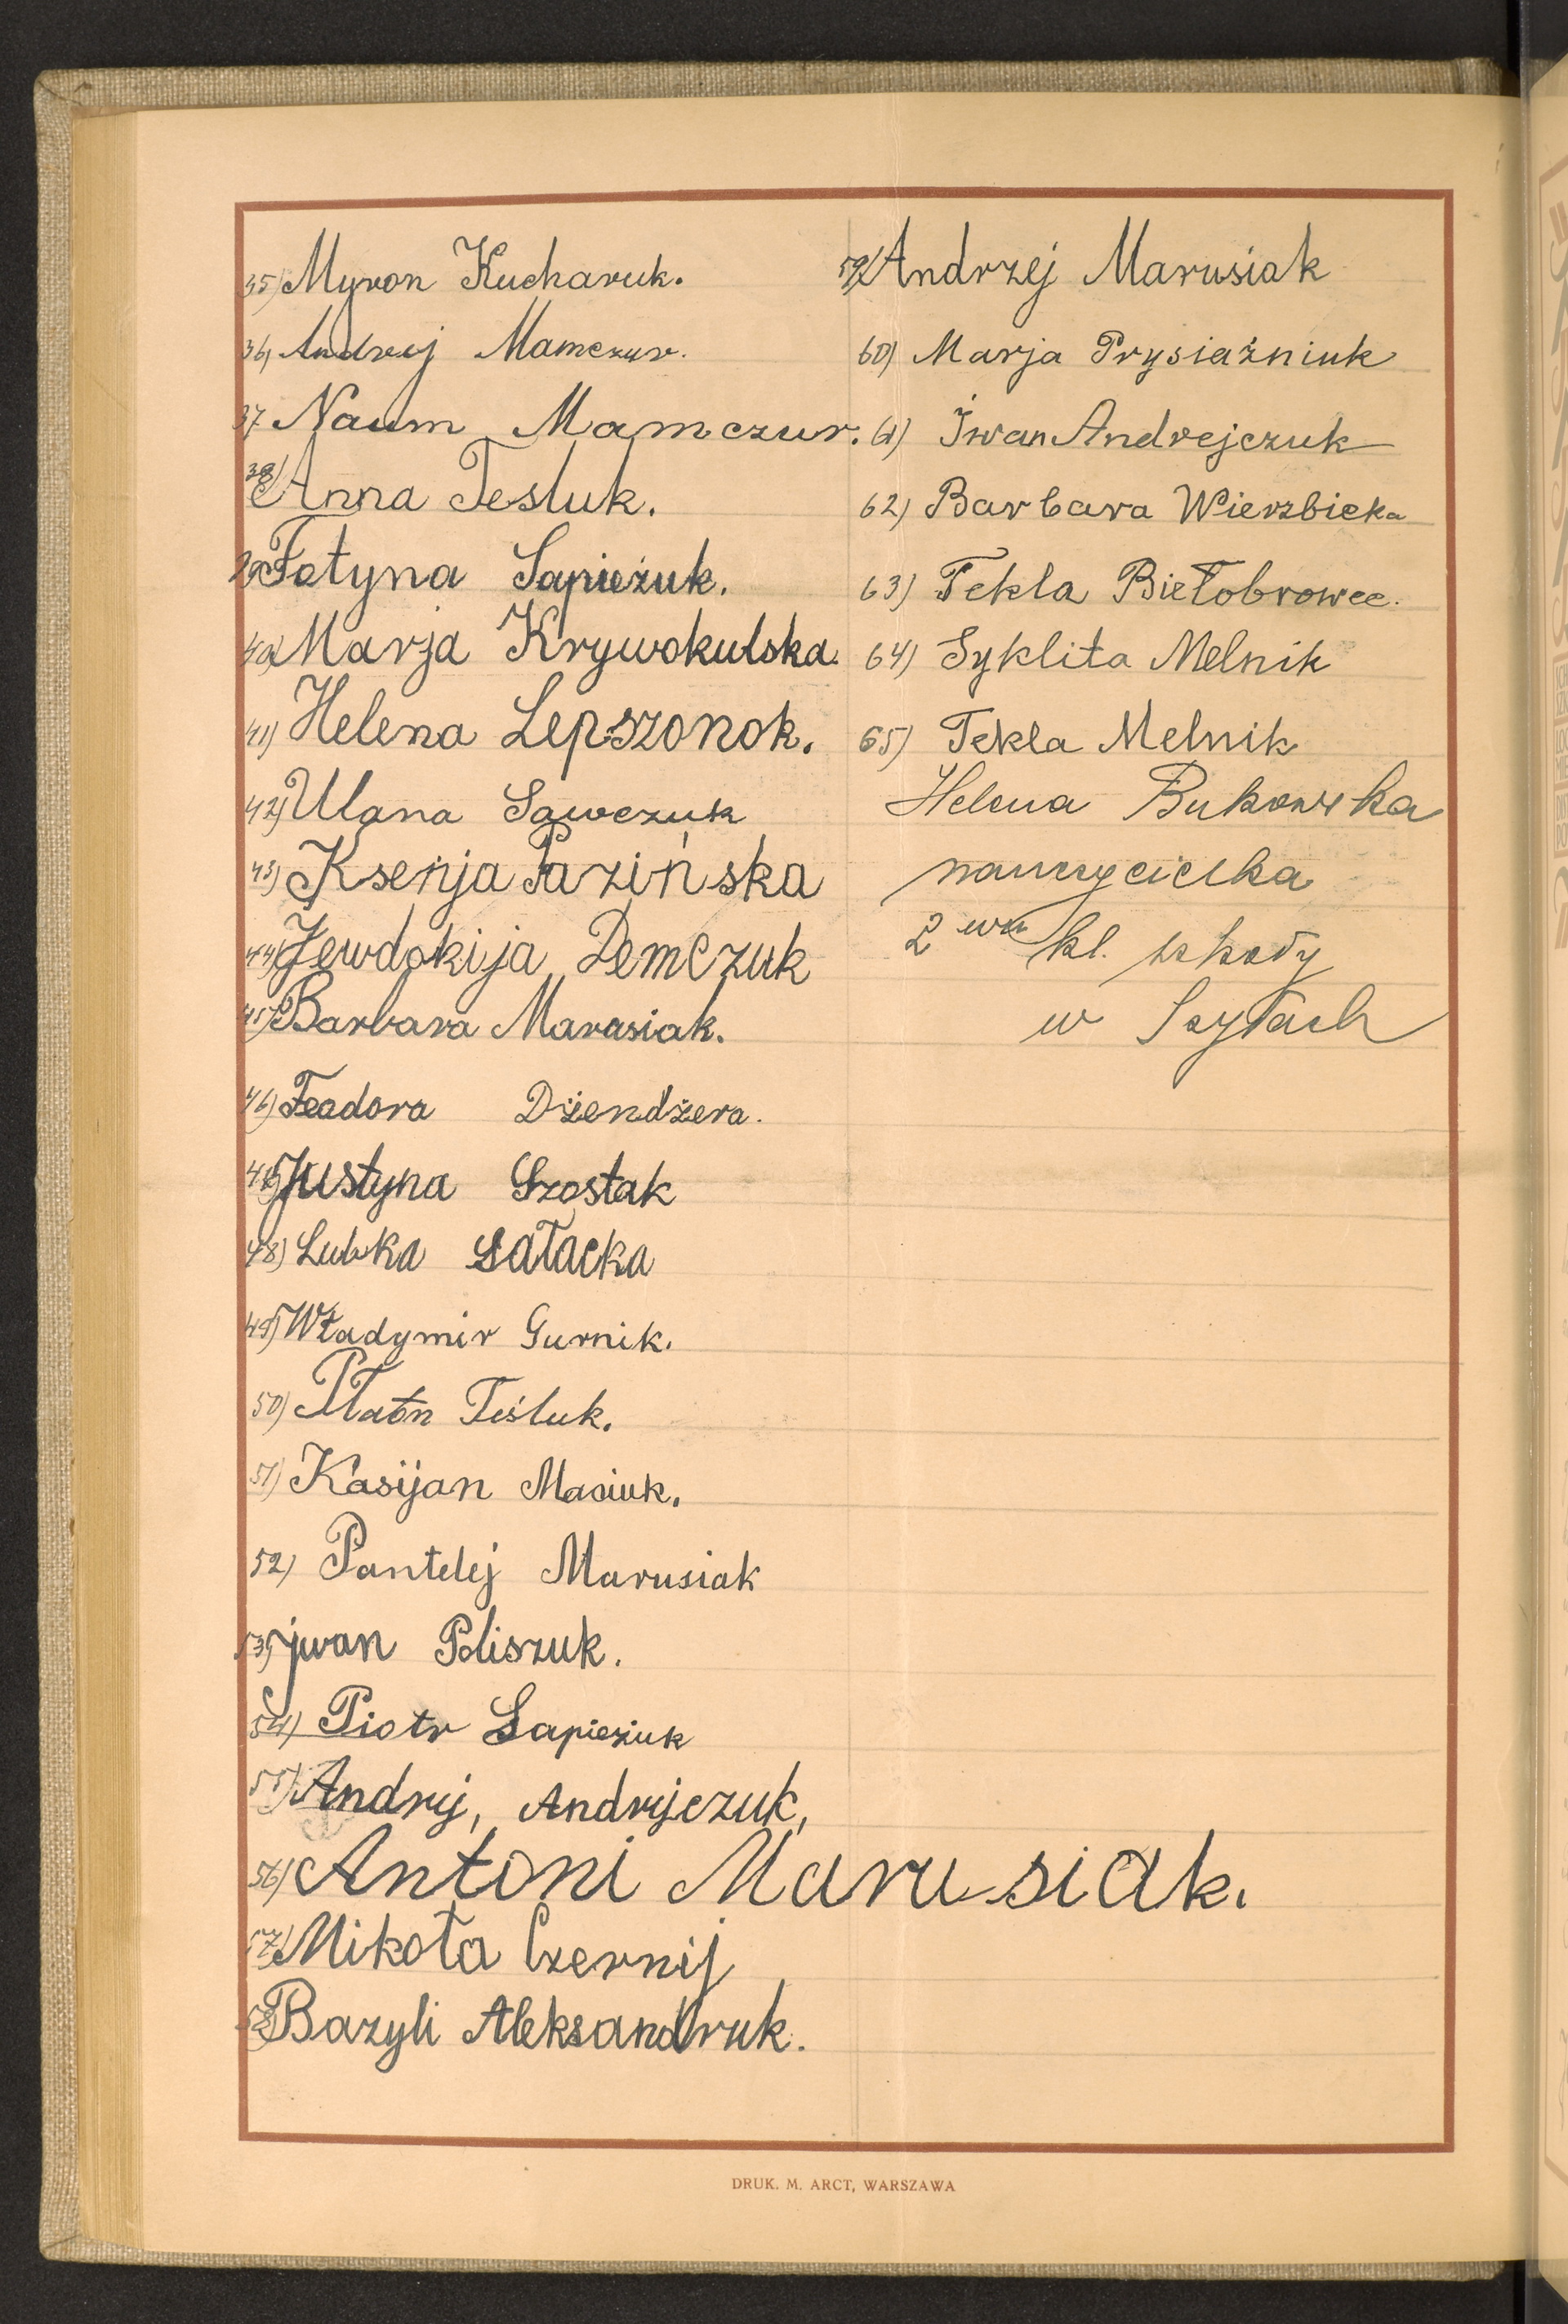 35) Myron Kucharuk.
36) Andrij Mamczur.
37 Naum Mamczur.
38) Anna Tesluk.
39) Fotyna Sapieżuk.
40) Marja Krywokulska.
41) Helena Lepszonok.
42) Ulana Sawczuk
43) Ksenja Pazińska
44) Jewdokija Demczuk
45) Barbara Marusiak.
46) Feodora Dżendżera.
47) Justyna Szostak
48) Lubka Sałacka
49) Władymir Gurnik.
50) Płaton Teśluk.
51) Kasijan Masiuk.
52) Pantelej Marusiak
53) jwan Poliszuk.
54) Piotr Sapieziuk
55) Andrij, Andrijczuk,
56) Antoni Marusiak.
57) Mikoła Czernij
58) Bazyli Aleksandruk.
59) Andrzej Marusiak
60) Marja Prysiażniuk
61) Iwan Andrejczuk
62) Barbara Wierzbicka
63) Tekla Biełobrowec.
64) Syklita Melnik
65) Tekla Melnik
Helena Bukowska
nauczycielka
2 wu kl. szkoły
w Szyłach
DRUK. M. ARCT, WARSZAWA